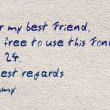 or my best friend,
free to use this Fon
24.
est regards
my